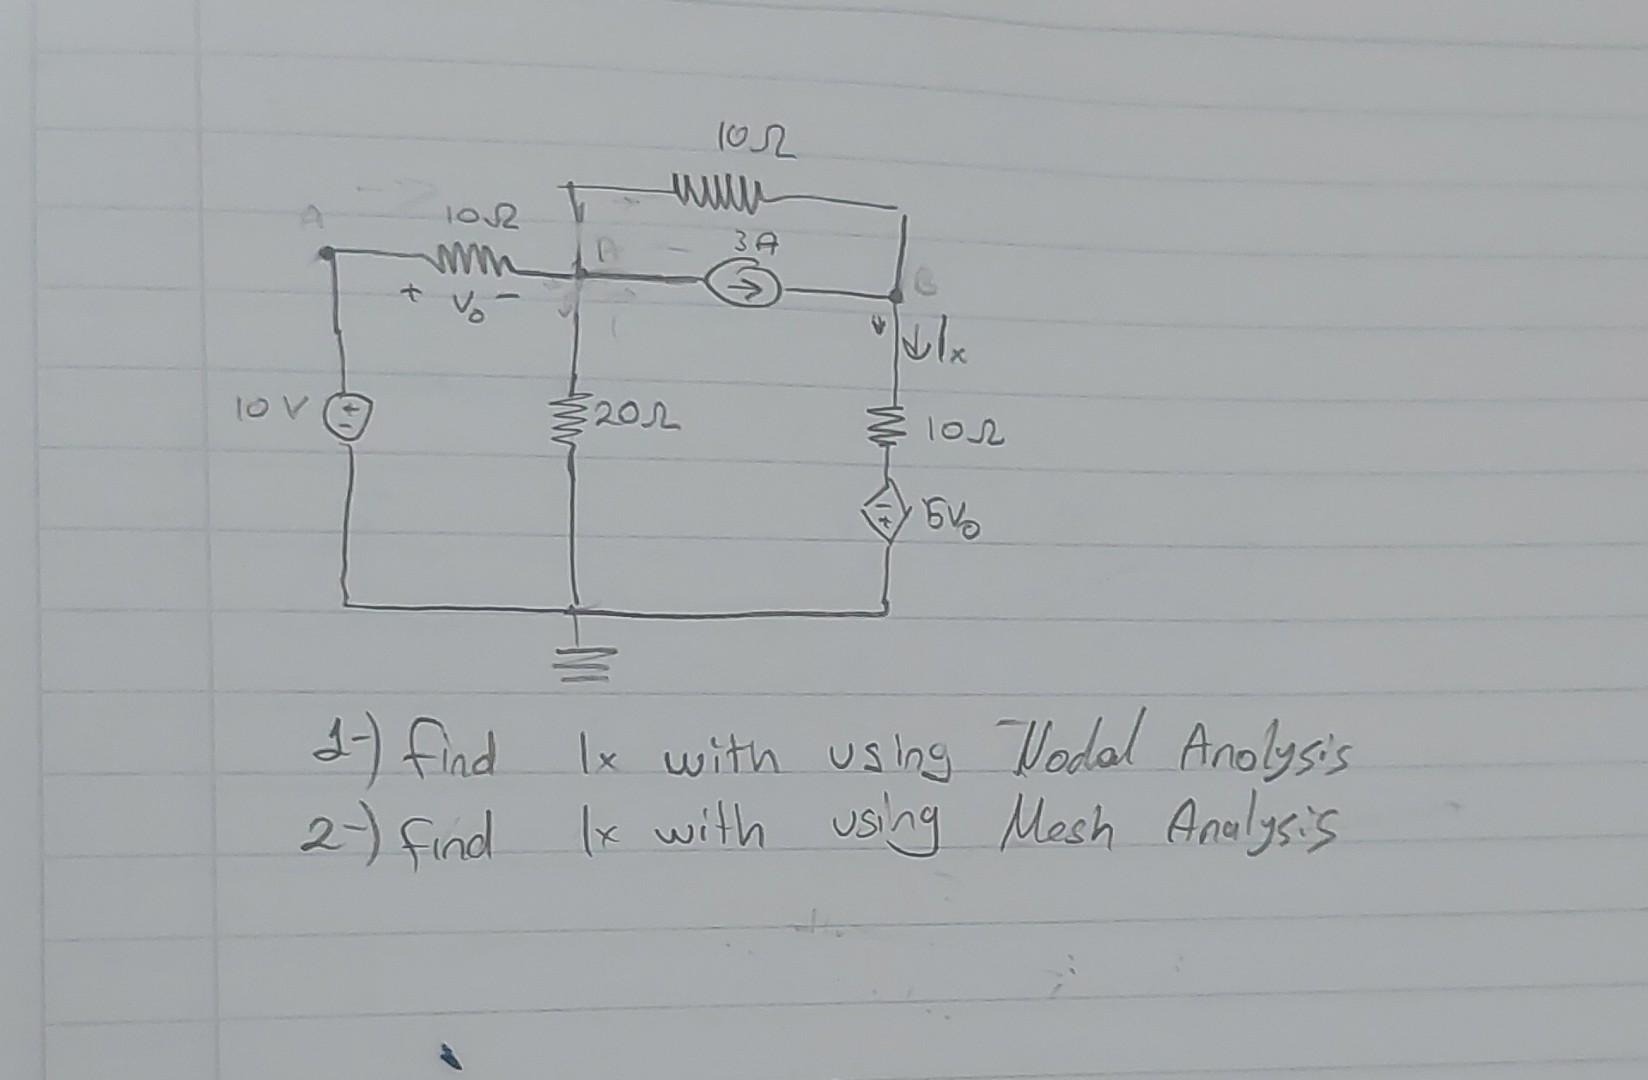 10Ω
A
10Ω
3A
A
B
+ V₀ -
↓Ix
10V
+
-
20Ω
10Ω
-
+
5V₀
1-) find Ix with using Nodal Anolysis
2-) find Ix with using Mesh Analysis